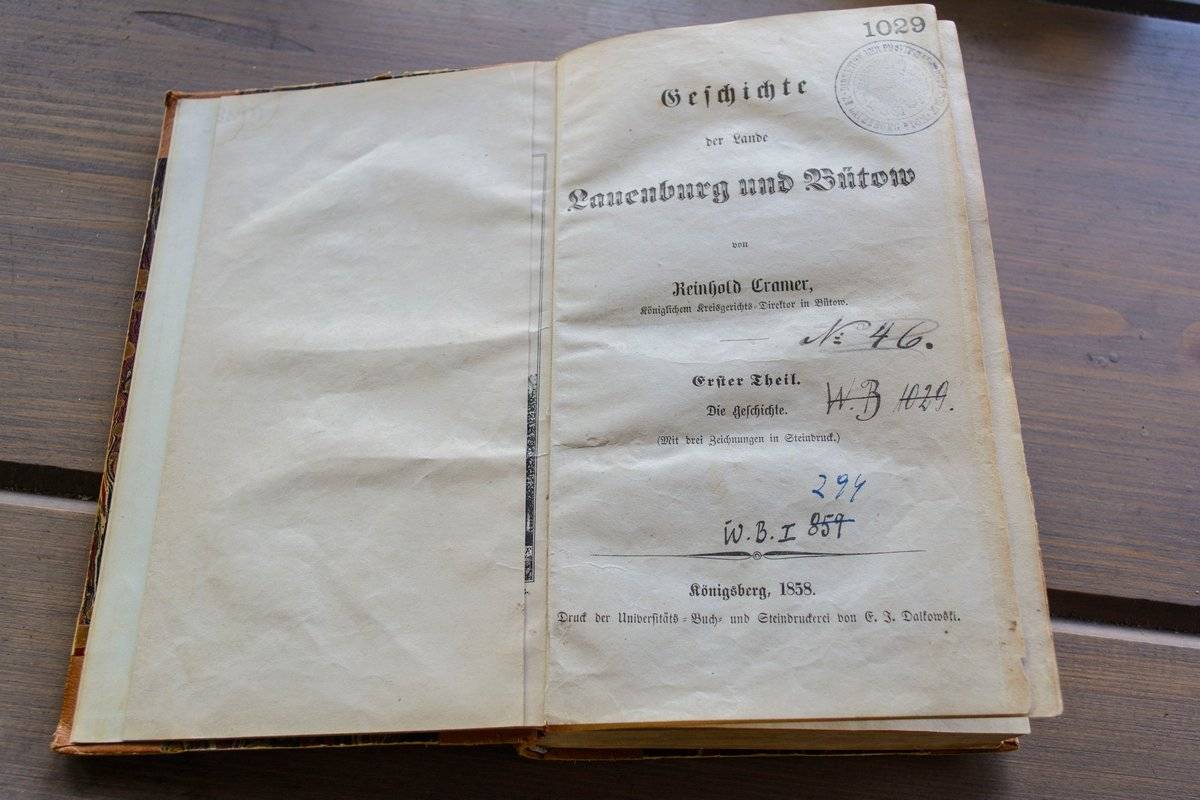 1029
Geschichte
der Lande
Lauenburg und Bütow
von
Reinhold Cramer,
Königlichem Kreisgerichts-Direktor in Bütow.
No 46.
Erster Theil.
W. B 1029.
Die Geschichte.
(Mit drei Zeichnungen in Steindruck.)
294
W. B. I 859
Königsberg, 1858.
Druck der Universitäts-Buch- und Steindruckerei von E. J. Dalkowski.